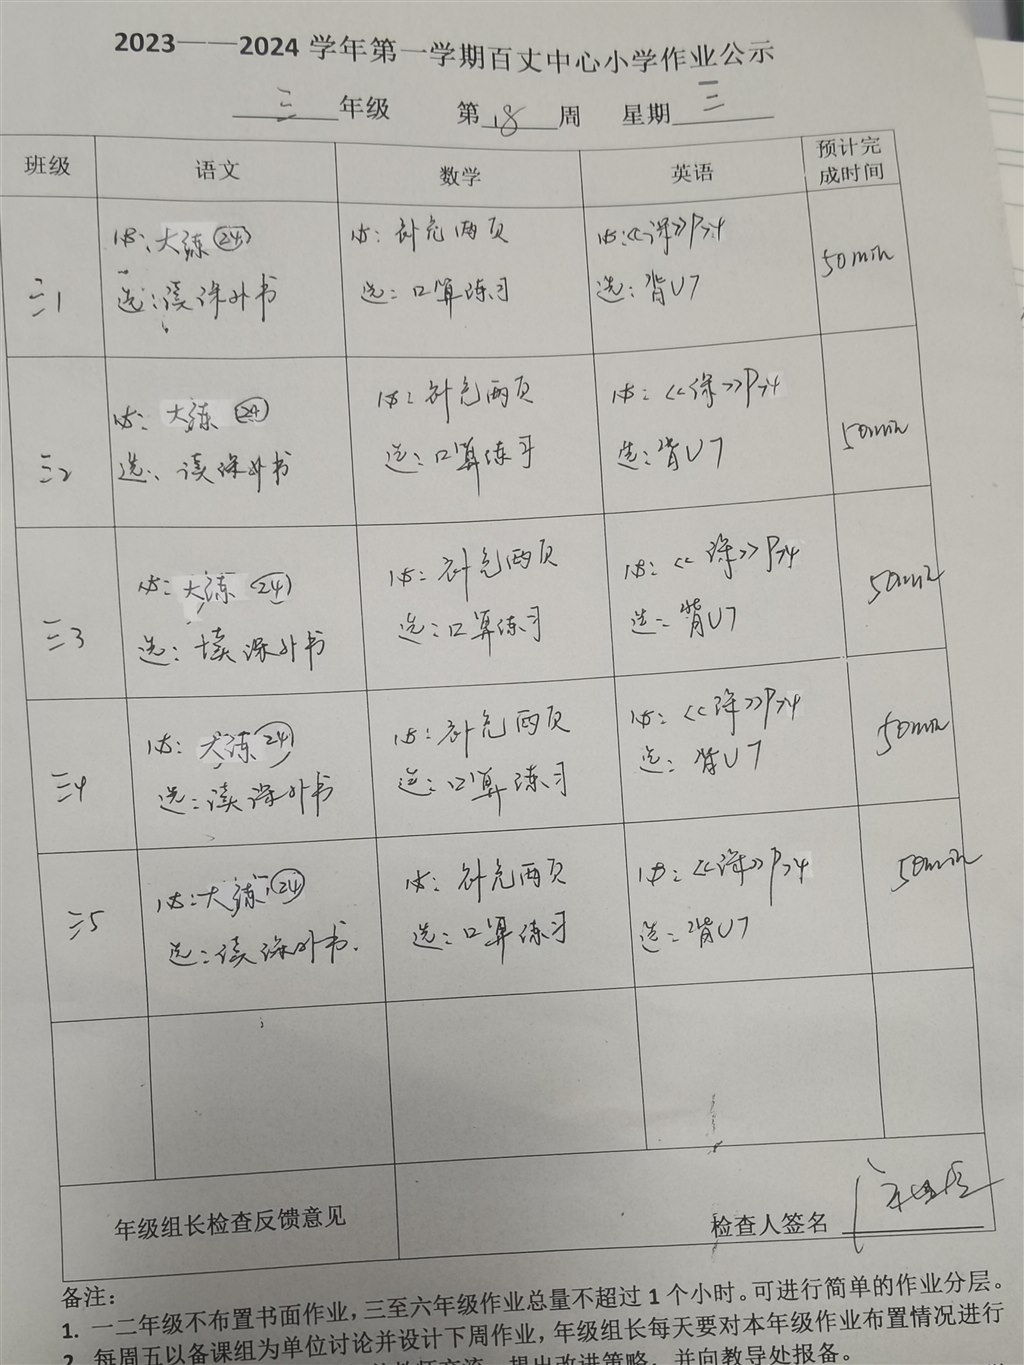 2023——2024 学年第一学期百丈中心小学作业公示
三 年级 第 18 周 星期 三
班级 语文 数学 英语 预计完成时间
三1
必: 大练 24
选: 读课外书
必: 补充两页
选: 口算练习
必: 《课》P74
选: 背U7
50min
三2
必: 大练 24
选: 读课外书
必: 补充两页
选: 口算练习
必: 《课》P74
选: 背U7
50min
三3
必: 大练 24
选: 读课外书
必: 补充两页
选: 口算练习
必: 《课》P74
选: 背U7
50min
三4
必: 大练 24
选: 读课外书
必: 补充两页
选: 口算练习
必: 《课》P74
选: 背U7
50min
三5
必: 大练 24
选: 读课外书.
必: 补充两页
选: 口算练习
必: 《课》P74
选: 背U7
50min
年级组长检查反馈意见
检查人签名
备注:
1. 一二年级不布置书面作业,三至六年级作业总量不超过 1 个小时。可进行简单的作业分层。
2. 每周五以备课组为单位讨论并设计下周作业,年级组长每天要对本年级作业布置情况进行
提出改进策略,并向教导处报备。